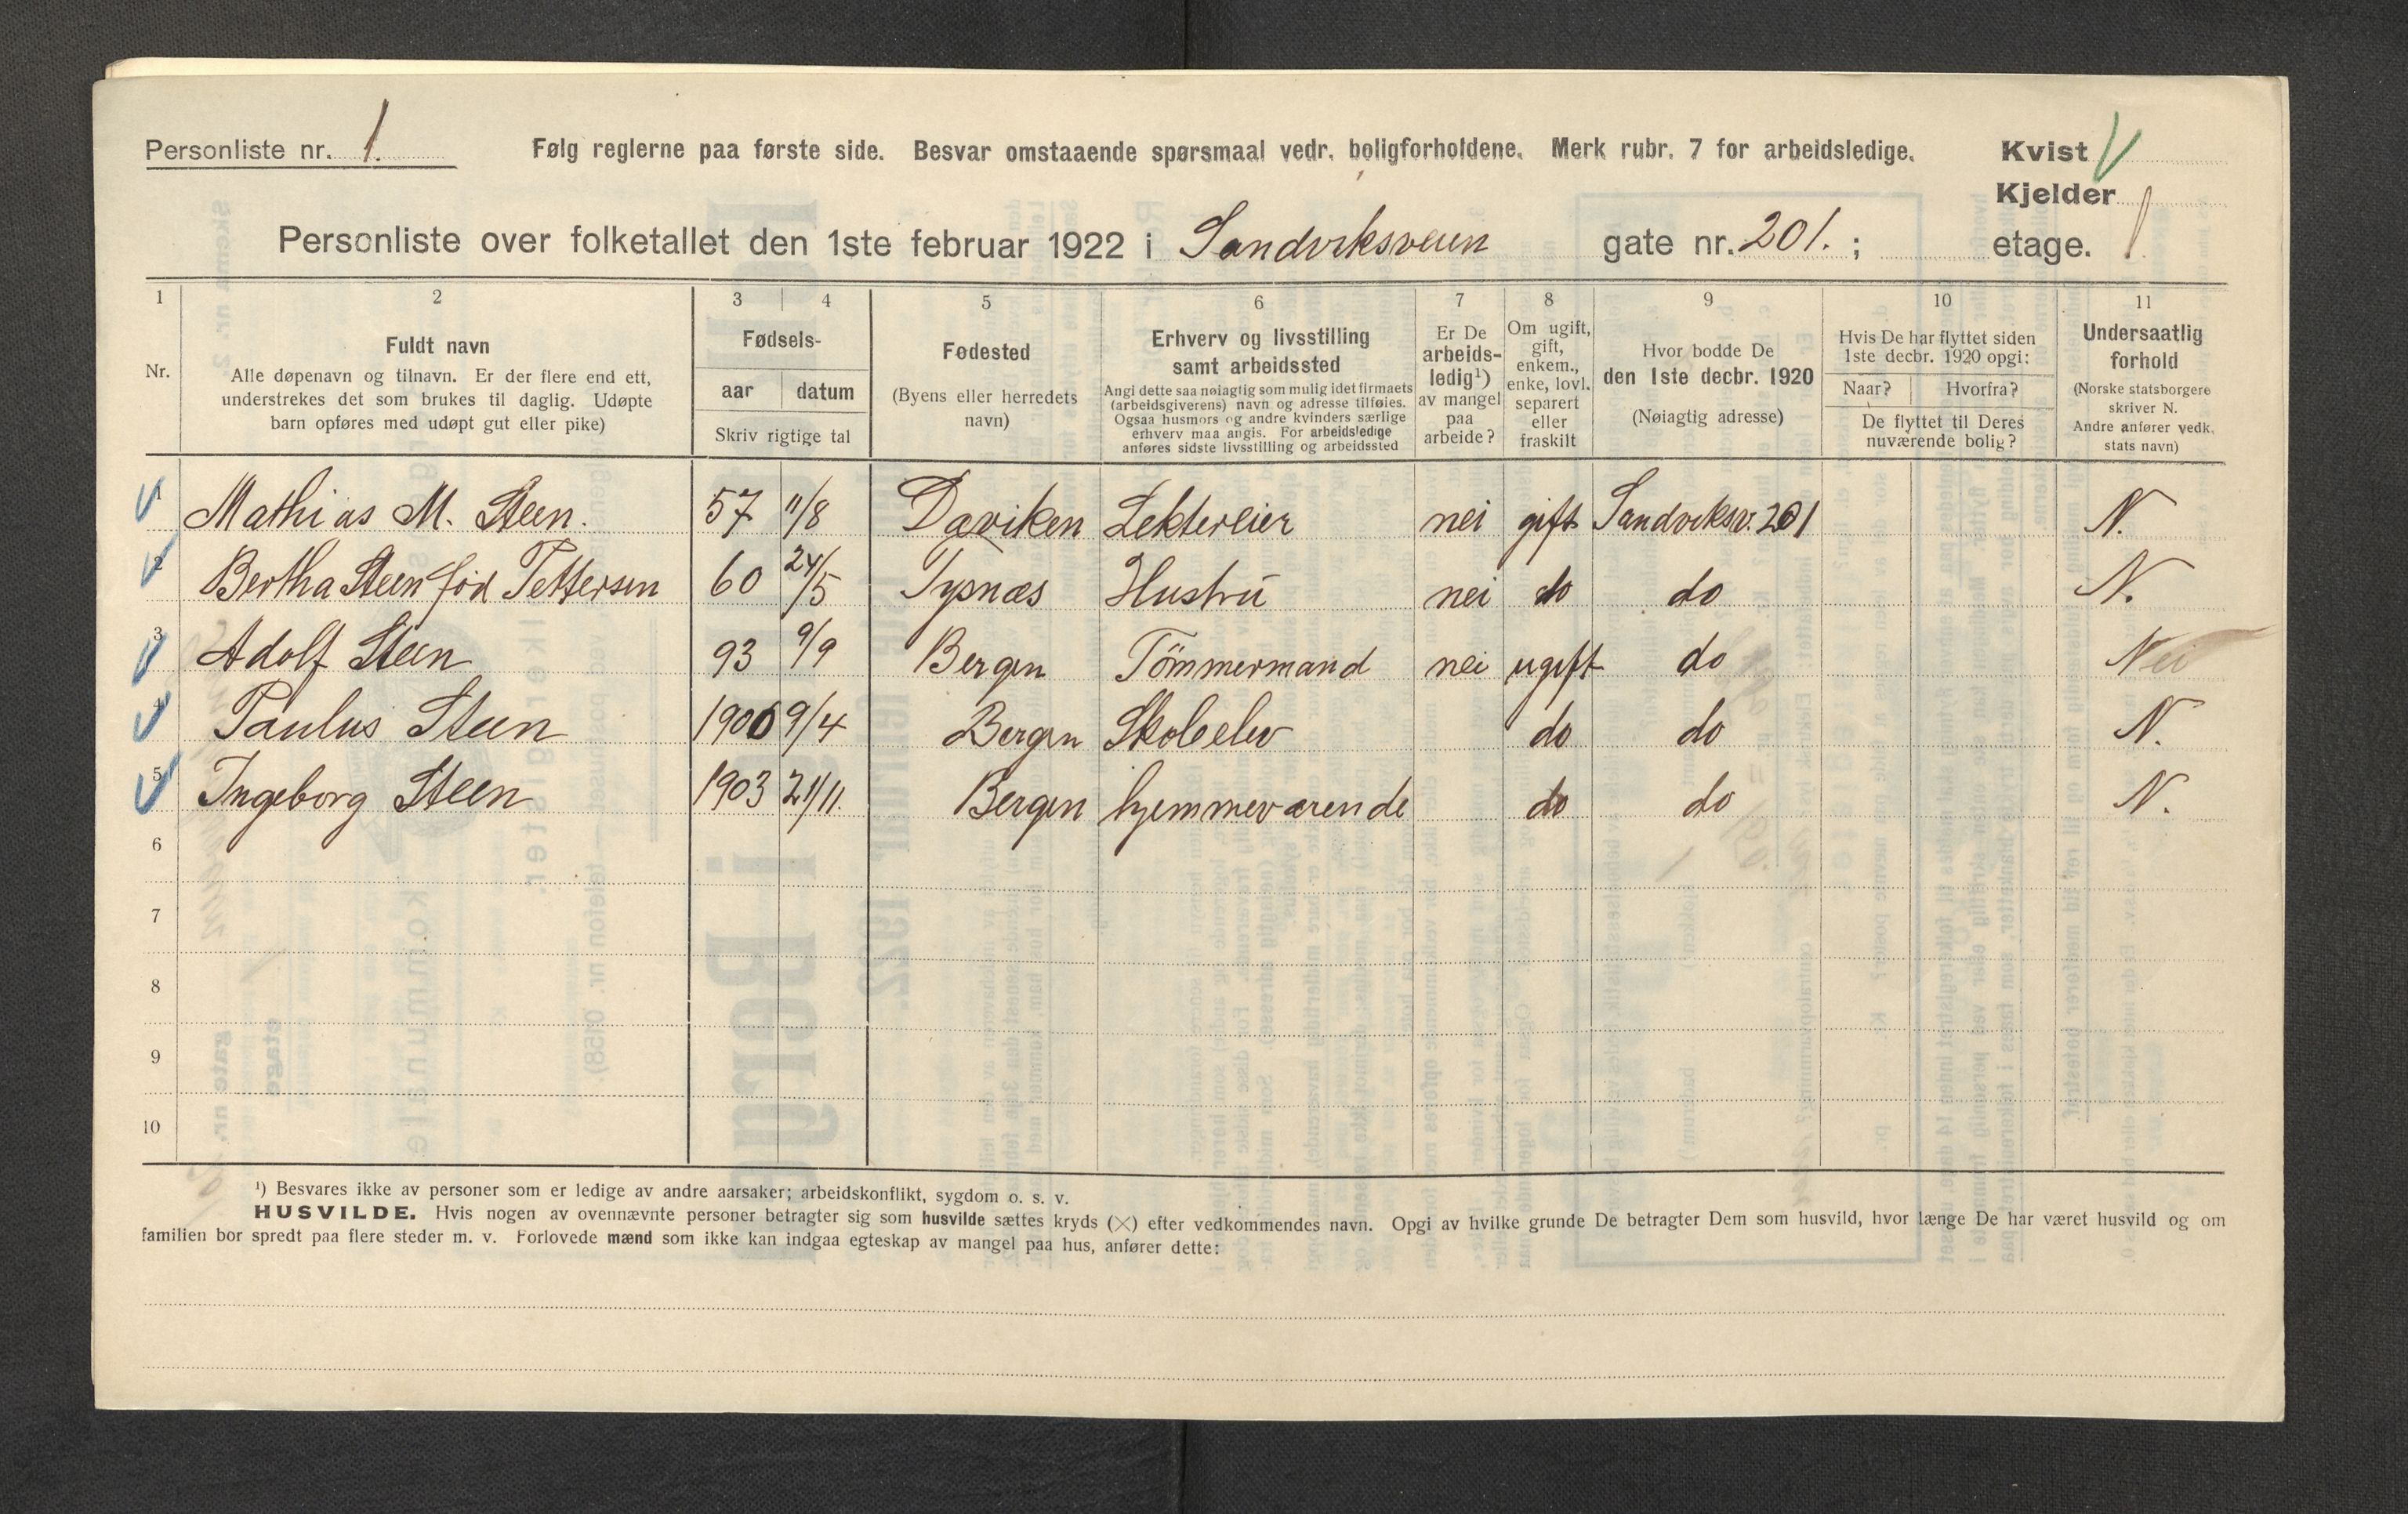 Personliste nr. 1. Følg reglerne paa første side. Besvar omstaaende spørsmaal vedr. boligforholdene. Merk rubr. 7 for arbeidsledige. Kvist
Kjelder
Personliste over folketallet den 1ste februar 1922 i Sandviksveien gate nr. 201. ; etage. 1
1 2 3 4 5 6 7 8 9 10 11
Nr.
Fuldt navn
Alle døpenavn og tilnavn. Er der flere end ett,
understrekes det som brukes til daglig. Udøpte
barn opføres med udøpt gut eller pike)
Fødsels-
aar datum
Skriv rigtige tal
Fødested
(Byens eller herredets
navn)
Erhverv og livsstilling
samt arbeidssted
Angi dette saa nøiagtig som mulig idet firmaets
(arbeidsgiverens) navn og adresse tilføies.
Ogsaa husmors og andre kvinders særlige
erhverv maa angis. For arbeidsledige
anføres sidste livsstilling og arbeidssted
Er De
arbeids-
ledig¹)
av mangel
paa
arbeide?
Om ugift,
gift,
enkem.,
enke, lovl.
separert
eller
fraskilt
Hvor bodde De
den 1ste decbr. 1920
(Nøiagtig adresse)
Hvis De har flyttet siden
1ste decbr. 1920 opgi:
Naar? Hvorfra?
De flyttet til Deres
nuværende bolig?
Undersaatlig
forhold
(Norske statsborgere
skriver N.
Andre anfører vedk.
stats navn)
1 Mathias M. Steen. 57 11/8 Daviken Lektereier nei gift Sandviksv. 201 N.
2 Bertha Steen fød Pettersen 60 24/5 Tysnæs Hustru nei do do N.
3 Adolf Steen 93 9/9 Bergen Tömmermand nei ugift do Nei
4 Paulus Steen 1906 9/4 Bergen Skoleelev do do N.
5 Ingeborg Steen 1903 21/11. Bergen hjemmeværende do do N.
6
7
8
9
10
¹) Besvares ikke av personer som er ledige av andre aarsaker; arbeidskonflikt, sygdom o. s. v.
HUSVILDE. Hvis nogen av ovennævnte personer betragter sig som husvilde sættes kryds (×) efter vedkommendes navn. Opgi av hvilke grunde De betragter Dem som husvild, hvor længe De har været husvild og om
familien bor spredt paa flere steder m. v. Forlovede mænd som ikke kan indgaa egteskap av mangel paa hus, anfører dette: